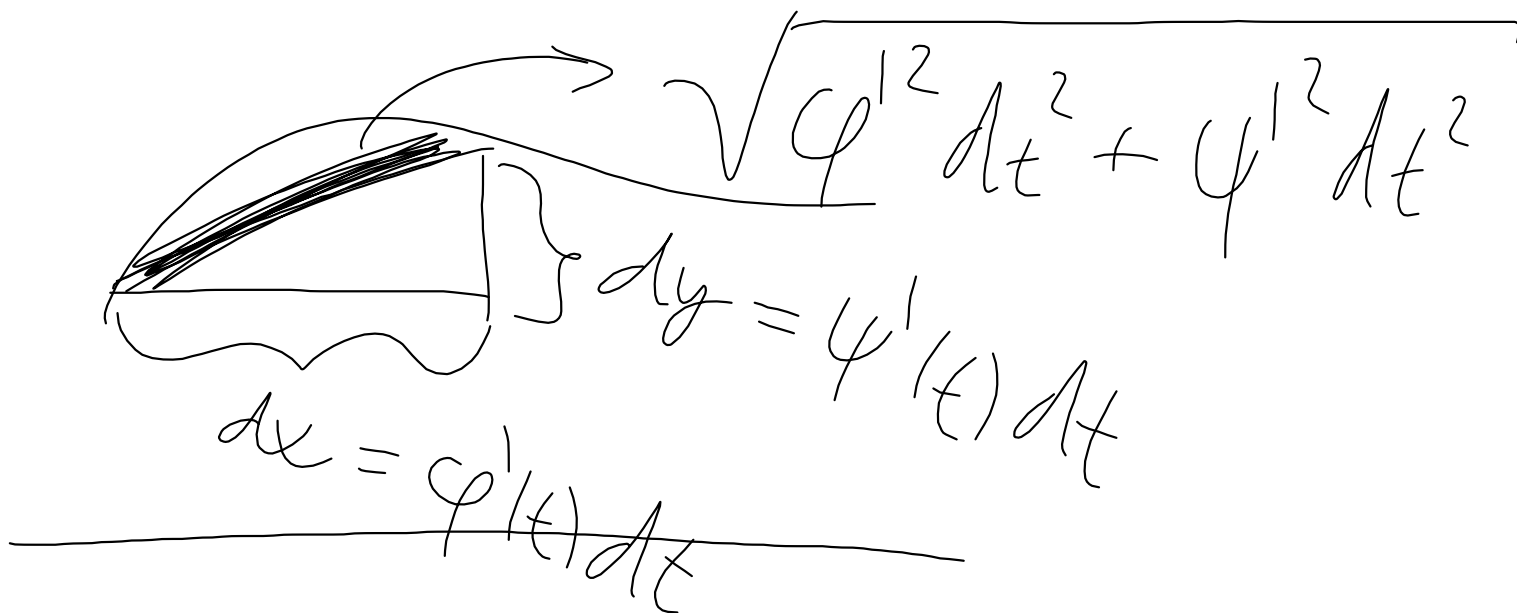 √(φ'² dt² + ψ'² dt²)
dy = ψ'(t) dt
dx = φ'(t) dt